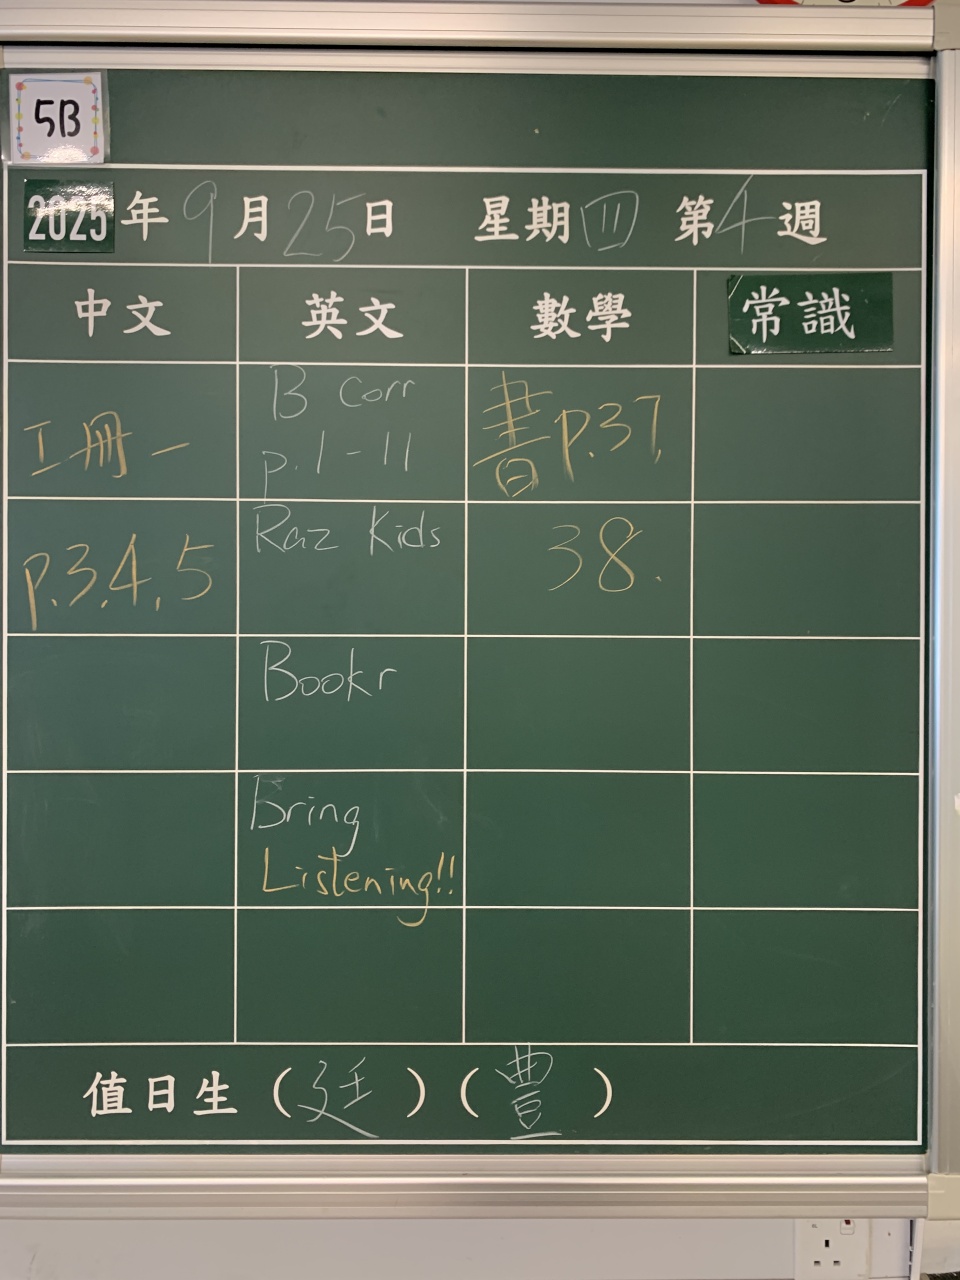 5B
2025年9月25日 星期四 第4週
中文 英文 數學 常識
工冊一
p.3,4,5
B Corr
p.1-11
Raz Kids
Bookr
Bring
Listening!!
書p.37,
38.
值日生(廷)(豊)